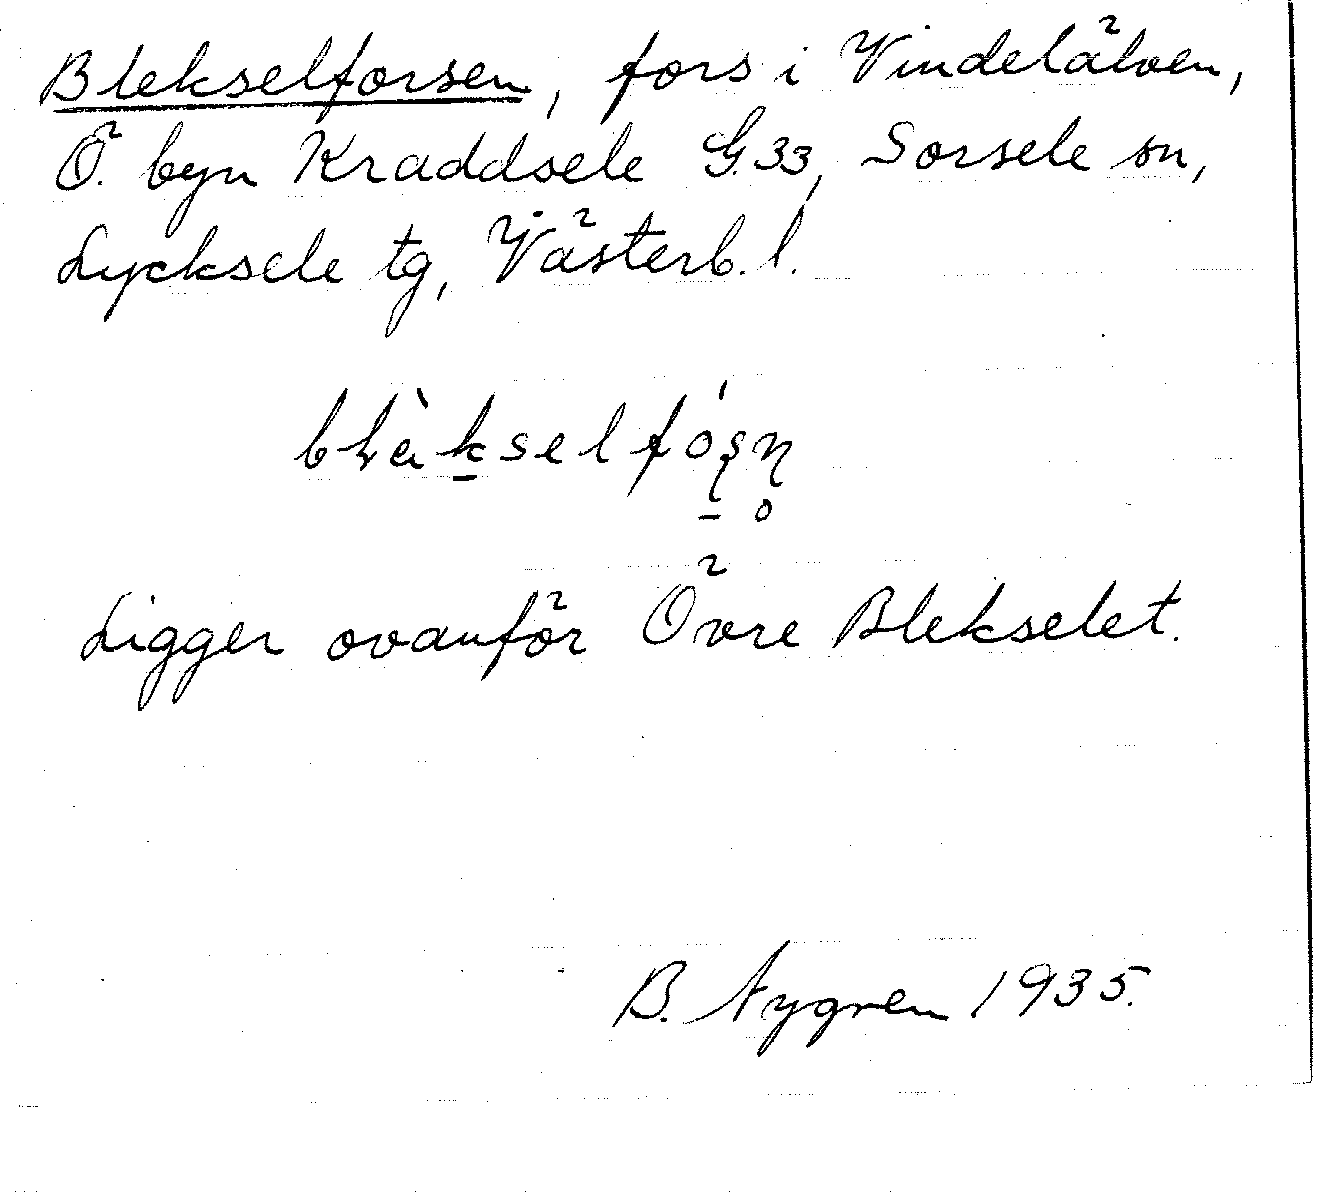 Blekselforsen, fors i Vindelälven,
Ö. byn Kraddsele G.33, Sorsele sn,
Lycksele tg, Västerb. l.
blὰkselfó̱ʂɳ̥
Ligger ovanför Övre Blekselet.
B. Nygren 1935.